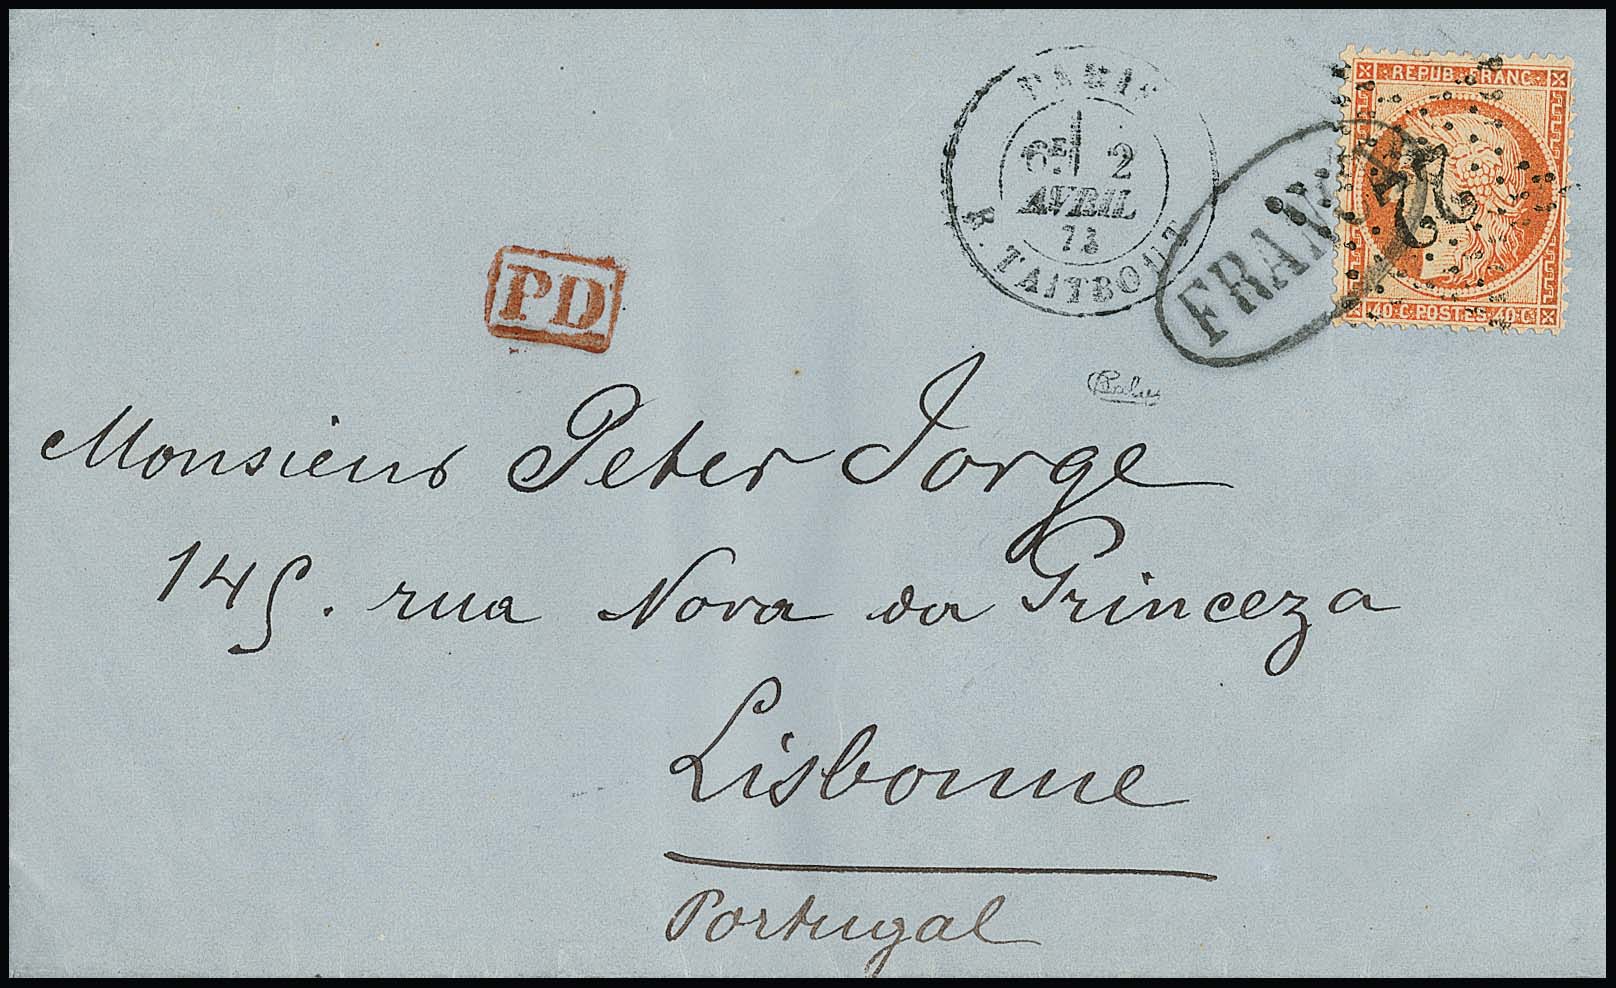 PARIS
6E 2
AVRIL
73
R. TAITBOUT
REPUB. FRANC.
22
40·C·POSTES·40·C
FRANCA
PD
Monsieur Peter Jorge
145. rua Nova da Princeza
Lisbonne
Portugal